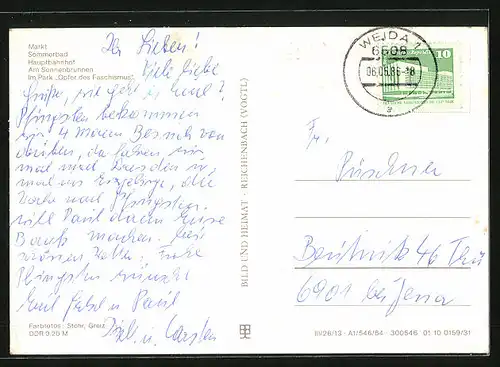 Markt
Sommerbad
Hauptbahnhof
Am Sonnenbrunnen
Im Park „Opfer des Faschismus“
Ihr Lieben!
Viele liebe
Grüße, wie geht es Euch?
Pfingsten bekommen
wir 4 Mann Besuch von
drüben, da fahren wir
mal nach Dresden u.
mal ins Erzgebirge, die
Woche nach Pfingsten
will Paul dann Eure
Bank machen.
schönen Frohe
Pfingsten wünscht
Euch u. Paul
u. Carsten
Farbfotos: Stöhr, Greiz
DDR 0,20 M
BILD UND HEIMAT · REICHENBACH (VOGTL)
WEIDA 1
6508
06.05.86-18
a
10
Fr.
Püschner
Beutnitz 46 Thür
6901 bei Jena
III/26/13 · A1/546/84 · 300546 01 10 0159/31